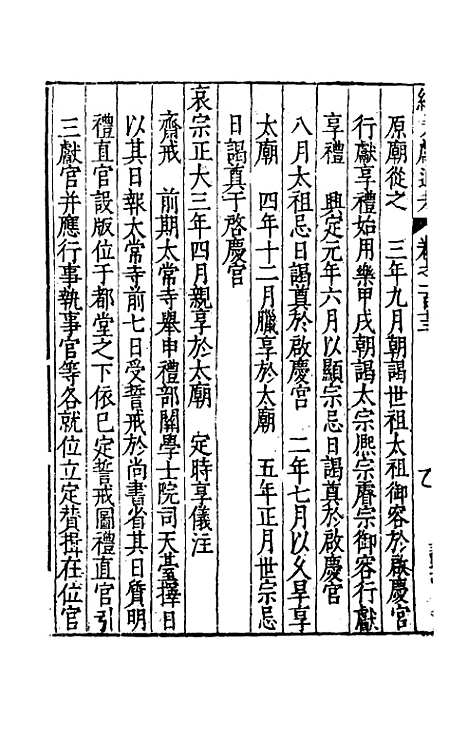 原廟從之　三年九月朝謁世祖太祖御容於啟慶宮
行獻享禮始用樂甲戌朝謁太宗熈宗睿宗御容行獻
享禮　興定元年六月以顯宗忌日謁真於啟慶宮
八月太祖忌日謁真於啟慶宮　二年七月以久旱享
太廟　四年十二月臘享於太廟　五年正月世宗忌
日謁真于啓慶宮
哀宗正大三年四月親享於太廟　定時享儀注
齋戒　前期太常寺舉申禮部關學士院司天臺擇日
以其日報太常寺前七日受誓戒於尚書省其日質明
禮直官設版位于都堂之下依已定誓戒圖禮直官引
三獻官并應行事執事官等各就位立定贊揖在位官